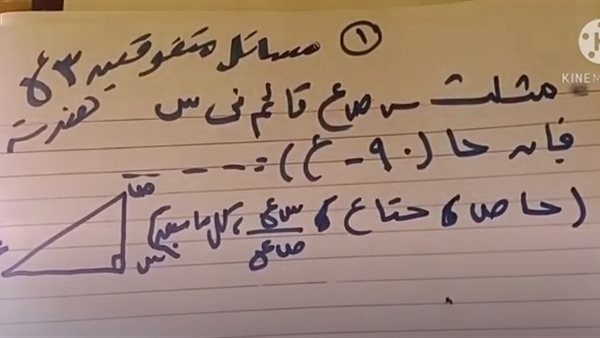 ① مسائل متفوقين ٣ع
هندسة
مثلث س ص ع قائم فى س
فإن حا (٩٠ - ع) = - - - -
(حا ص ، حتا ع ، س ع / ص ع ، كل ما سبق)
ص
س
ع
KINEM